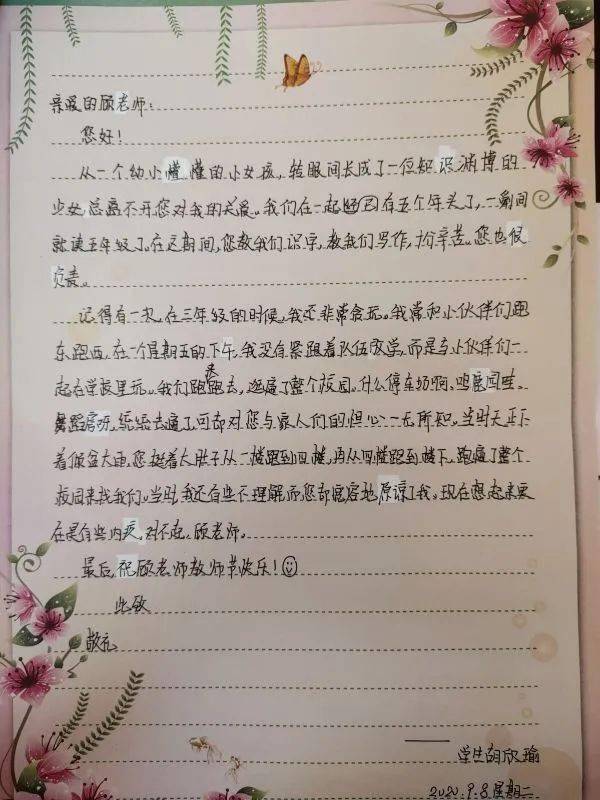 亲爱的顾老师：
您好！
从一个幼小懂懂的小女孩，转眼间长成了一位知识渊博的
少女，总离不开您对我的关爱。我们在一起已有五个年头了，一瞬间
就读五年级了。在这期间，您教我们识字，教我们写作，十分辛苦。您也很
负责。
记得有一次，在三年级的时候，我还非常贪玩。我常和小伙伴们跑
东跑西，在一个星期五的下午，我没有紧跟着队伍放学，而是与小伙伴们一
起在学校里玩。我们跑来跑去，逛遍了整个校园。什么停车场啊，鸣
舞蹈房呀，统统去遍了，可却对您与家人们的担心一无所知。当时天正下
着倾盆大雨，您挺着大肚子从一楼跑到四楼，再从四楼跑到楼下，跑遍了整个
校园来找我们。当时，我还有些不理解，而您却宽容地原谅了我。现在想起来实
在是有些内疚，对不起，顾老师。
最后，祝顾老师教师节快乐！
此致
敬礼
学生胡欣瑜
2020.9.8 星期二